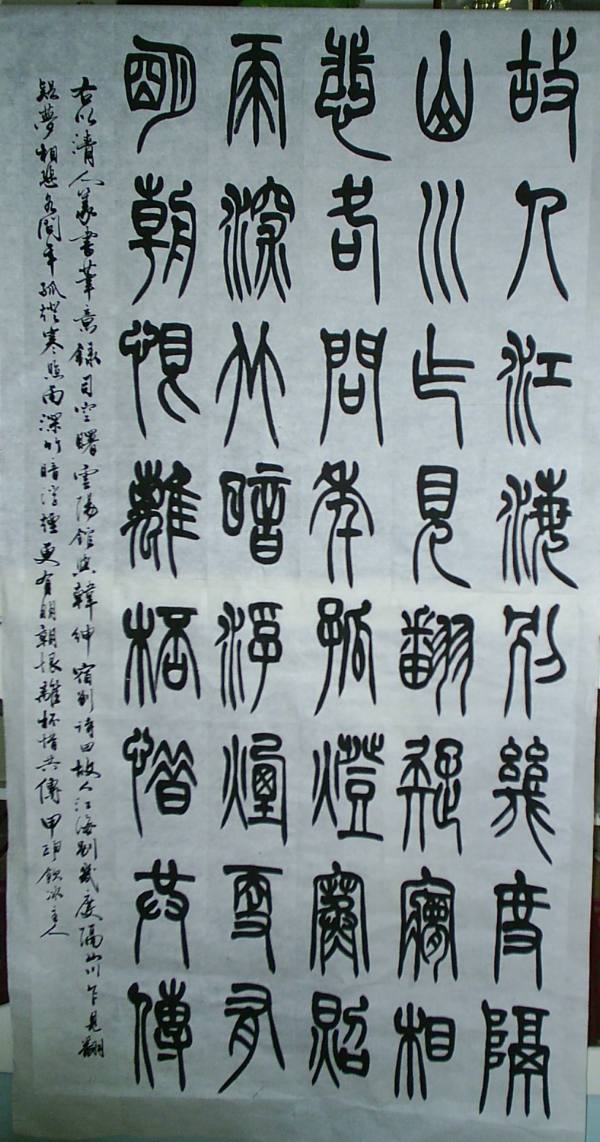 故人江海別幾度隔
山川乍見翻疑夢相
悲各問年孤燈寒照
雨深竹暗浮煙更有
明朝恨離桮惜共傳
右以清人篆書筆意録司空曙雲陽館與韓紳宿別詩曰故人江海別幾度隔山川乍見翻
疑夢相悲各問年孤燈寒照雨深竹暗浮煙更有明朝恨離杯惜共傳甲申飲冰主人